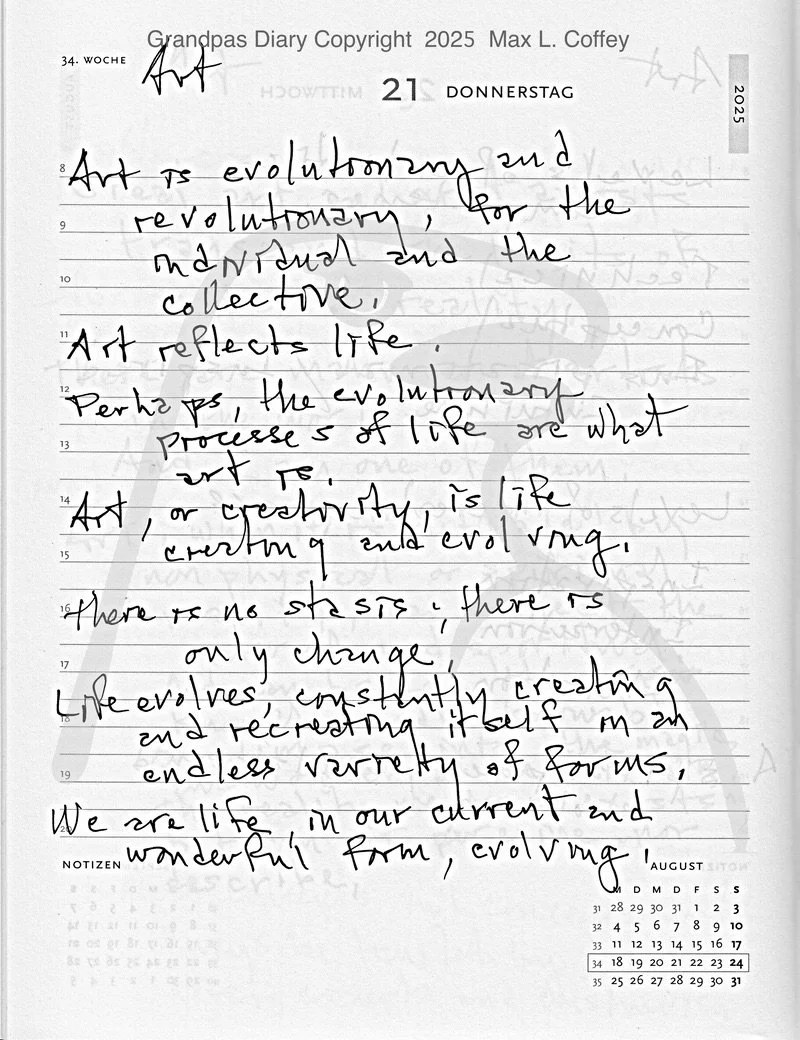 Grandpas Diary Copyright 2025 Max L. Coffey
34. WOCHE
Art
21 DONNERSTAG
2025
8
Art is evolutionary and
revolutionary, for the
9
individual and the
10
collective.
11
Art reflects life.
12
Perhaps, the evolutionary
processes of life are what
13
art is.
14
Art, or creativity, is life
creating and evolving.
15
16
there is no stasis; there is
only change;
17
Life evolves, constantly creating
18
and recreating itself in an
endless variety of forms.
19
We are life, in our current and
20
wonderful form, evolving.
NOTIZEN
AUGUST
M D M D F S S
31 28 29 30 31 1 2 3
32 4 5 6 7 8 9 10
33 11 12 13 14 15 16 17
34 18 19 20 21 22 23 24
35 25 26 27 28 29 30 31